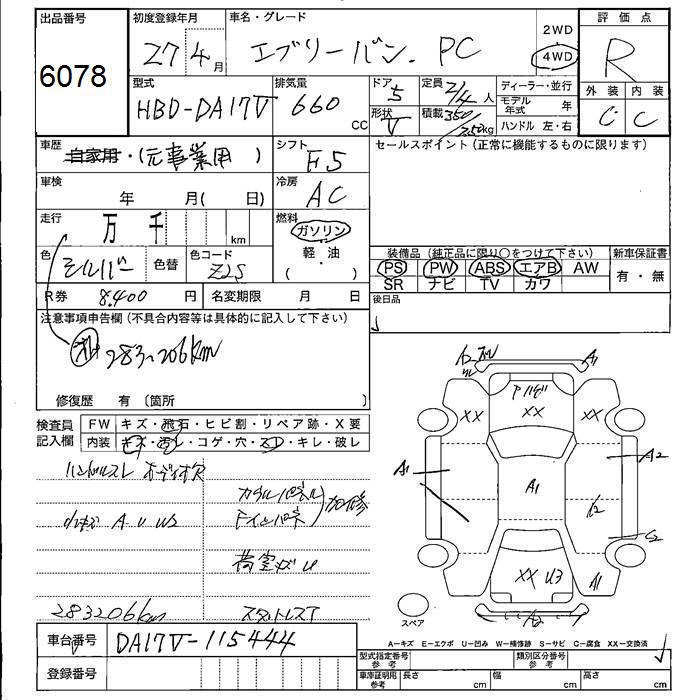 出品番号 初度登録年月 車名・グレード 2WD 評価点
6078 27 4月 エブリーバン. PC 4WD R
型式 排気量 ドア 定員 ディーラー・並行 外装 内装
HBD-DA17V 660 CC 5 2/4人 モデル年式 年 C C
形状 V 積載 350/250kg ハンドル 左・右
車歴 シフト セールスポイント(正常に機能するものに限ります)
自家用・(元事業用) F5
車検 年 月( 日) 冷房 AC
走行 万 千 km 燃料 ガソリン
軽・油
( )
色 シルバー 色替 色コード Z2S
装備品(純正品に限り○をつけて下さい) 新車保証書
PS PW ABS エアB AW 有・無
SR ナビ TV カワ
R券 8.400 円 名変期限 月 日 後日品
注意事項申告欄(不具合内容等は具体的に記入して下さい)
283206km
修復歴 有 〔箇所 〕
検査員 記入欄 FW キズ・飛石・ヒビ割・リペア跡・X要
内装 キズ・汚レ・コゲ・穴・スレ・キレ・破レ
ハンドルスレ オーディオ欠
A U W2
荷室ズレU
283206km スタットレスT
A1
XX XX XX
A1 A2
A1 W2
C2
XX U3 A1
A2
スペア
A-キズ E-エクボ U-凹み W-補修跡 S-サビ C-腐食 XX-交換済
車台番号 DA17V-115444
登録番号
型式指定番号 参考 類別区分番号 参考
車庫証明用 参考 長さ cm 幅 cm 高さ cm